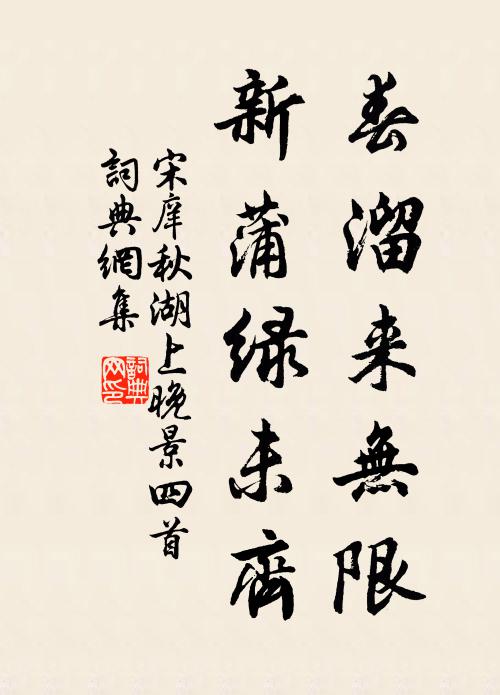 春溜来無限
新蒲緑未齊
宋庠秋湖上晚景四首
詞典網集
詞典
网印